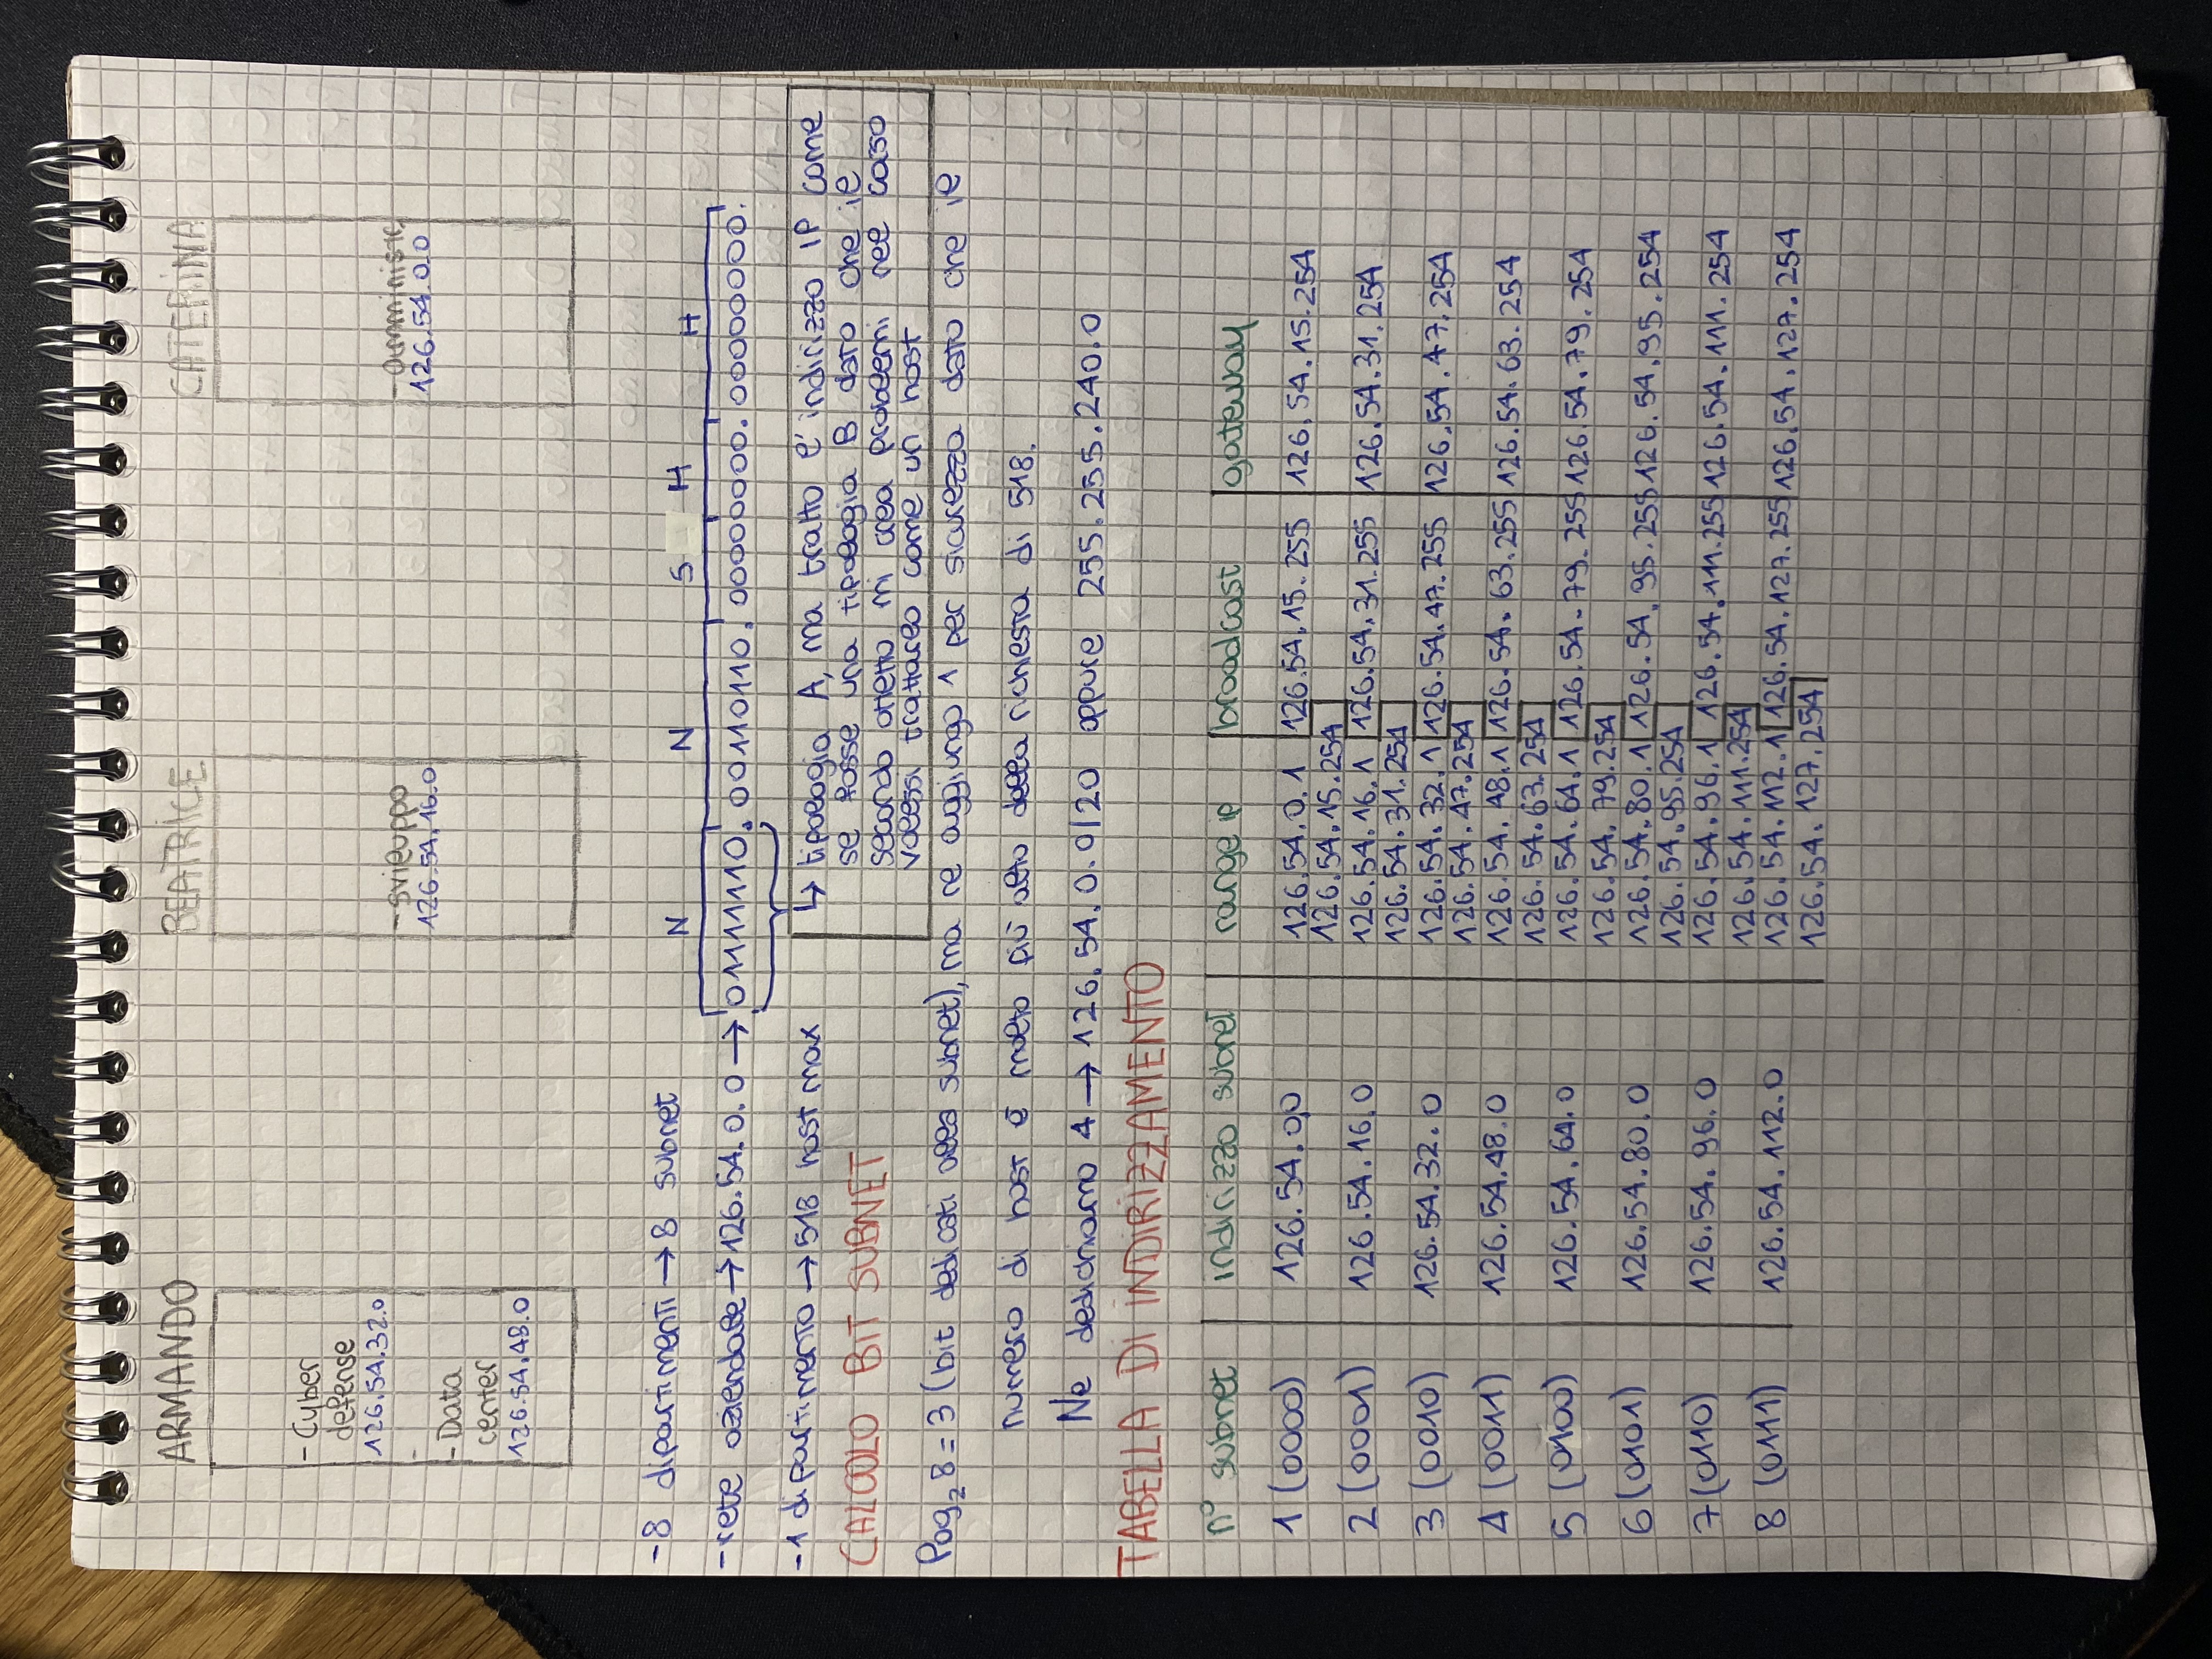 ARMANDO BEATRICE CATERINA
- Cyber
defense
126.54.32.0
- sviluppo - amministr.
126.54.16.0 126.54.0.0
-
- Data
center
126.54.48.0
- 8 dipartimenti → 8 subnet
N N S H H
- rete aziendale → 126.54.0.0 → 01111110. 00110110. 00000000. 00000000.
- 1 dipartimento → 518 host max
↳ tipologia A, ma tratto l'indirizzo IP come
se fosse una tipologia B dato che il
secondo ottetto mi crea problemi nel caso
volessi trattarlo come un host
CALCOLO BIT SUBNET
log₂ 8 = 3 (bit dedicati alla subnet), ma ne aggiungo 1 per sicurezza dato che il
numero di host è molto più alto della richiesta di 518.
Ne dedichiamo 4 → 126.54.0.0/20 oppure 255.255.240.0
TABELLA DI INDIRIZZAMENTO
n° subnet indirizzo subnet range ip broadcast gateway
1 (0000) 126.54.0.0 126.54.0.1 126.54.15.255 126.54.15.254
126.54.15.254
2 (0001) 126.54.16.0 126.54.16.1 126.54.31.255 126.54.31.254
126.54.31.254
3 (0010) 126.54.32.0 126.54.32.1 126.54.47.255 126.54.47.254
126.54.47.254
4 (0011) 126.54.48.0 126.54.48.1 126.54.63.255 126.54.63.254
126.54.63.254
5 (0100) 126.54.64.0 126.54.64.1 126.54.79.255 126.54.79.254
126.54.79.254
6 (0101) 126.54.80.0 126.54.80.1 126.54.95.255 126.54.95.254
126.54.95.254
7 (0110) 126.54.96.0 126.54.96.1 126.54.111.255 126.54.111.254
126.54.111.254
8 (0111) 126.54.112.0 126.54.112.1 126.54.127.255 126.54.127.254
126.54.127.254